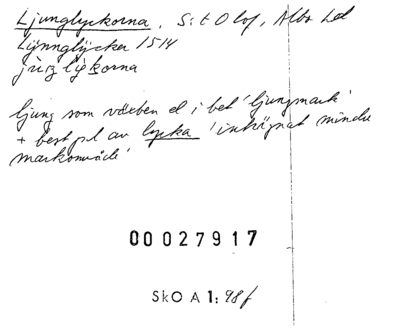 Ljunglyckorna, S:t Olof, Albo hd
Lÿnnglÿcker 1514
ljung som växten el i bet 'ljungmark'
+ best pl av lycka 'inhägnat mindre
markområde'
00027917
SkO A 1: 98f